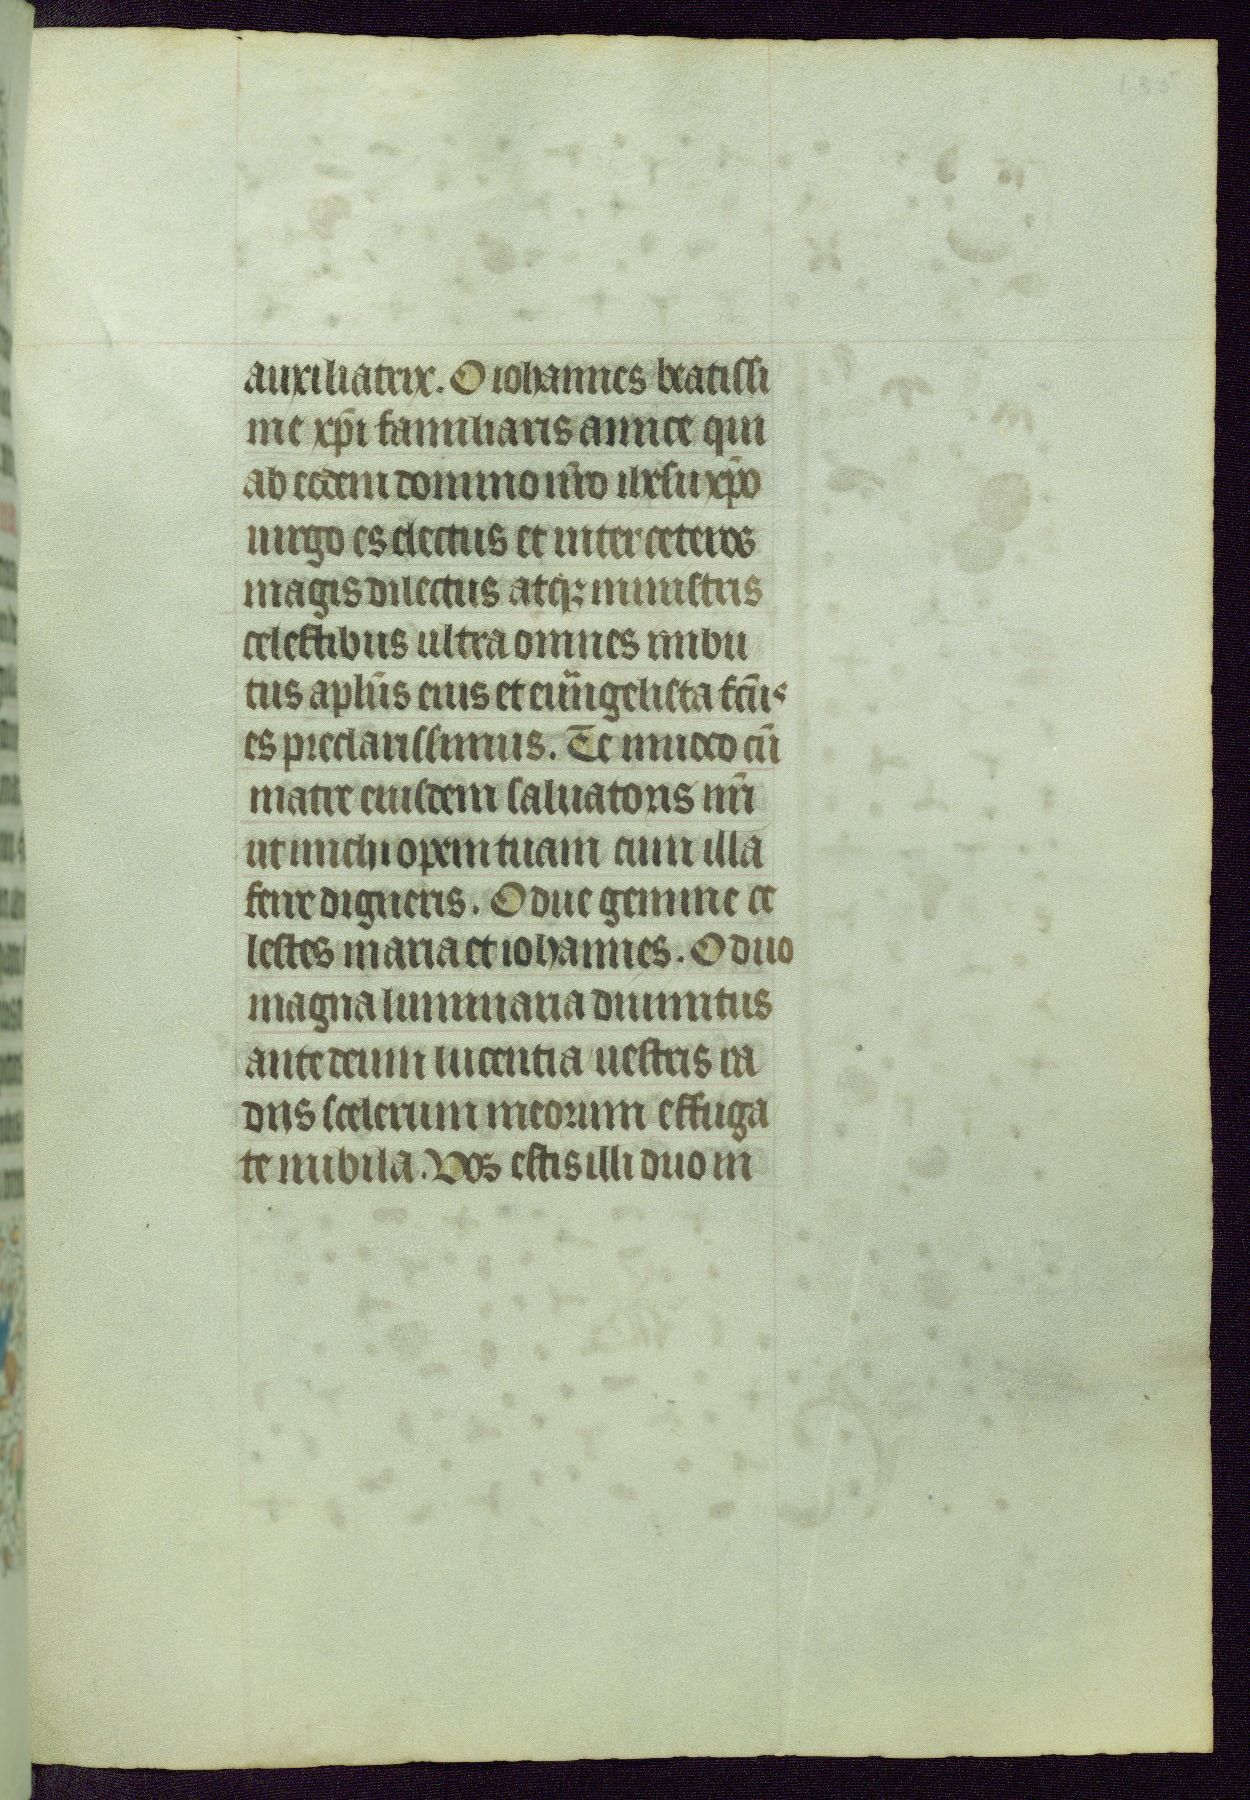 auxiliatrix. O iohannes beatissi
me xp̄i familiaris amice qui
ab eodem domino nr̄o ihesu xp̄o
uirgo es electus et inter ceteros
magis dilectus atq; ministris
celestibus ultra omnes imbu
tus apl̄us eius et euūgelista fc̄us
es preclarissimus. Te inuoco cū
matre eiusdem saluatoris nr̄i
ut michi opem tuam cum illa
ferre digneris. O due gemme ce
lestes maria et iohannes. O duo
magna luminaria diuinitus
ante deum lucentia uestris ra
diis scelerum meorum effuga
te nubila. Vos estis illi duo in